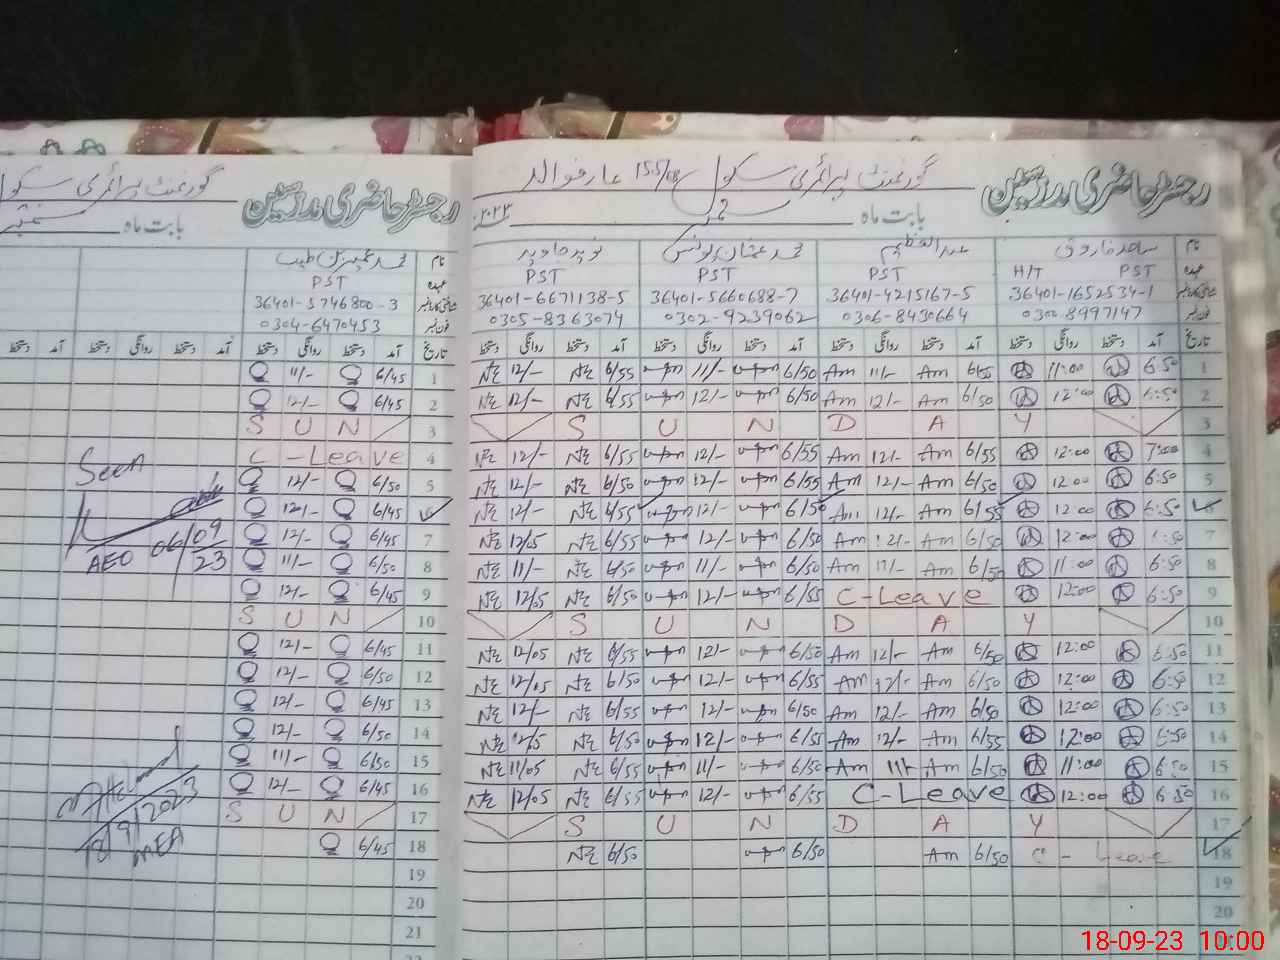 گورنمنٹ پرائمری سکول 155/EB عارفوالہ
رجسٹر حاضری مدرسین
بابت ماہ ستمبر ۲۰۲۳
نام ساجد فاروق عبدالعظیم محمد عثمان یونس نوید جاوید
عہدہ H/T PST PST PST PST
شناختی کارڈ نمبر 36401-1652534-1 36401-4215167-5 36401-5660688-7 36401-6671138-5
فون نمبر 0300-8997147 0306-8430664 0302-9239062 0305-8363074
تاریخ آمد دستخط روانگی دستخط آمد دستخط روانگی دستخط آمد دستخط روانگی دستخط آمد دستخط روانگی دستخط
1 6:50 11:00 6/55 Am 11/- Am 6/50 11/- 6/55 12/-
2 6:50 12:00 6/50 Am 12/- Am 6/50 12/- 6/55 12/-
3 S U N D A Y
4 7:00 12:00 6/55 Am 12/- Am 6/55 12/- 6/55 12/-
5 6:50 12:00 6/50 Am 12/- Am 6/55 12/- 6/50 12/-
6 6:50 12:00 6/55 Am 12/- Am 6/50 12/- 6/55 12/-
7 6:50 12:00 6/50 Am 12/- Am 6/50 12/- 6/55 12/05
8 6:50 11:00 6/50 Am 11/- Am 6/50 11/- 6/50 11/-
9 6:50 12:00 C-Leave 6/55 12/- 6/50 12/05
10 S U N D A Y
11 6:50 12:00 6/50 Am 12/- Am 6/50 12/- 6/55 12/05
12 6:50 12:00 6/50 Am 12/- Am 6/55 12/- 6/50 12/05
13 6:50 12:00 6/50 Am 12/- Am 6/50 12/- 6/55 12/-
14 6:50 12:00 6/55 Am 12/- Am 6/55 12/- 6/50 12/5
15 6:50 11:00 6/50 Am 11/- Am 6/50 11/- 6/55 11/05
16 6:50 12:00 C-Leave 6/55 12/- 6/55 12/05
17 S U N D A Y
18 C - Leave 6/50 Am 6/50 6/50
19
20
گورنمنٹ پرائمری سکول
رجسٹر حاضری مدرسین
بابت ماہ ستمبر
نام محمد عمیر بن طیب
عہدہ PST
شناختی کارڈ نمبر 36401-5746800-3
فون نمبر 0304-6470453
تاریخ آمد دستخط روانگی دستخط آمد دستخط روانگی دستخط آمد دستخط
1 6/45 11/-
2 6/45 12/-
3 S U N
4 C-Leave
5 6/50 12/-
6 6/45 12/-
7 6/45 12/-
8 6/50 11/-
9 6/45 12/-
10 S U N
11 6/45 12/-
12 6/50 12/-
13 6/45 12/-
14 6/50 12/-
15 6/50 11/-
16 6/45 12/-
17 S U N
18 6/45
19
20
21
Seen
AEO 06/09/23
18/9/2023
MEA
18-09-23 10:00